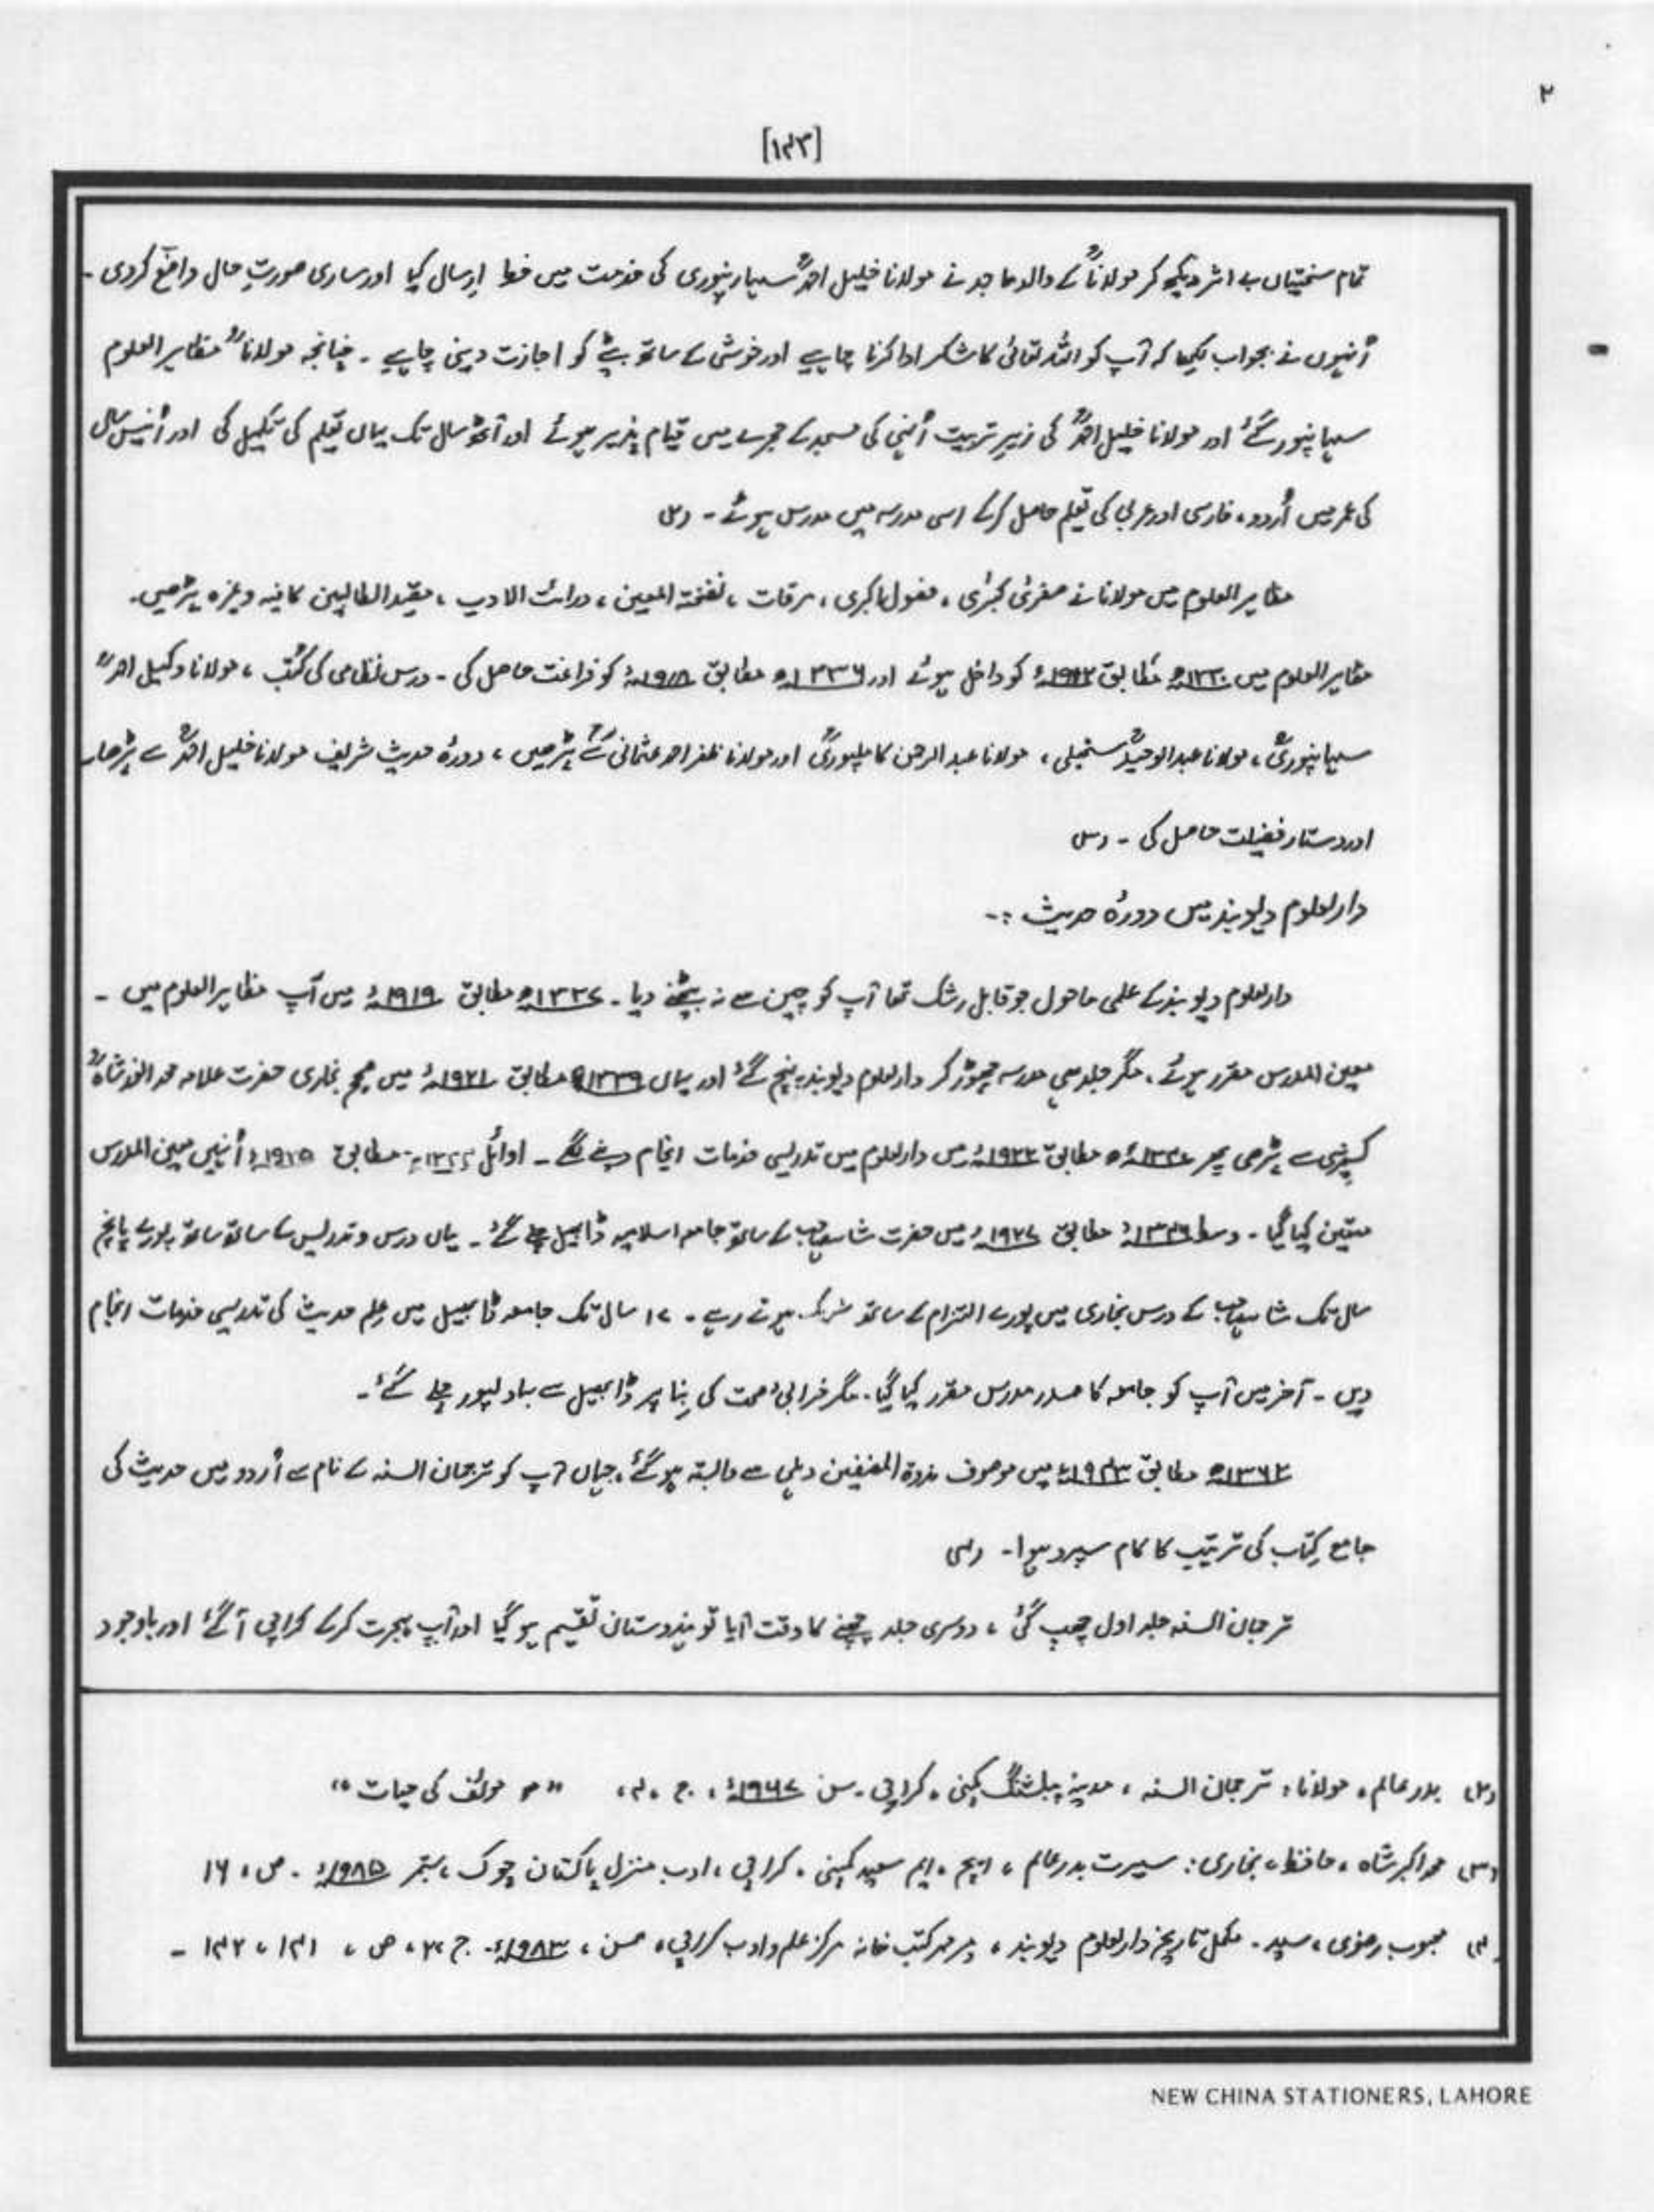 ۲
[۱۴۳]
تمام سختیاں بے اثر دیکھ کر مولاناؒ کے والد ماجد نے مولانا خلیل احمدؒ سہارنپوری کی خدمت میں خط ارسال کیا اور ساری صورتِ حال واضح کردی ۔
اُنہوں نے بجواب لکھا کہ آپ کو اللہ تعالیٰ کا شکر ادا کرنا چاہیے اور خوشی کے ساتھ بیٹے کو اجازت دینی چاہیے ۔ چنانچہ مولاناؒ مظاہر العلوم
سہانپور گئے اور مولانا خلیل احمدؒ کی زیرِ تربیت اُنہی کی مسجد کے حجرے میں قیام پذیر ہوئے اور آٹھ سال تک یہاں تعلیم کی تکمیل کی اور اُنیس سال
کی عمر میں اُردو، فارسی اور عربی کی تعلیم حاصل کرکے اسی مدرسہ میں مدرس ہوئے ۔ (۲)
مظاہر العلوم میں مولانا نے صغریٰ کبریٰ، فصول اکبری، مرقات، نفحۃ الیمین، دراست الادب، مفید الطالبین کافیہ وغیرہ پڑھیں۔
مظاہر العلوم میں ۱۳۳۰ھ مطابق ۱۹۱۲ء کو داخل ہوئے اور ۱۳۳۶ھ مطابق ۱۹۱۸ء کو فراغت حاصل کی ۔ درس نظامی کی کُتب، مولانا وکیل احمدؒ
سہانپوریؒ، مولانا عبدالوحیدؒ سنبھلی، مولانا عبدالرحمن کاملپوریؒ اور مولانا ظفر احمد عثمانیؒ سے پڑھیں، دورۂ حدیث شریف مولانا خلیل احمدؒ سے پڑھا۔
اور دستار فضیلت حاصل کی ۔ (۳)
دارالعلوم دیوبند میں دورۂ حدیث :۔
دارالعلوم دیوبند کے علمی ماحول جو قابل رشک تھا آپ کو چین سے نہ بیٹھنے دیا ۔ ۱۳۳۷ھ مطابق ۱۹۱۹ء میں آپ مظاہر العلوم میں ۔
معین المدرس مقرر ہوئے، مگر جلد ہی مدرسہ چھوڑ کر دارالعلوم دیوبند پہنچ گئے اور یہاں ۱۳۳۹ھ مطابق ۱۹۲۱ء میں صحیح بخاری حضرت علامہ محمد انور شاہؒ
کشمیری سے پڑھی پھر ۱۳۴۰ھ مطابق ۱۹۲۲ء میں دارالعلوم میں تدریسی خدمات انجام دینے لگے ۔ اوائل ۱۳۴۴ھ مطابق ۱۹۲۵ء اُنہیں معین المدرس
متعین کیا گیا ۔ وسط ۱۳۴۶ھ مطابق ۱۹۲۷ء میں حضرت شاہ صاحب کے ساتھ جامعہ اسلامیہ ڈابھیل چلے گئے ۔ یہاں درس و تدریس کے ساتھ ساتھ پورے پانچ
سال تک شاہ صاحب کے درس بخاری میں پورے التزام کے ساتھ شریک ہوتے رہے ۔ ۱۷ سال تک جامعہ ڈابھیل میں علم حدیث کی تدریسی خدمات انجام
دیں ۔ آخر میں آپ کو جامعہ کا صدر مدرس مقرر کیا گیا۔ مگر خرابیٔ صحت کی بِنا پر ڈابھیل سے بہاولپور چلے گئے۔
۱۳۶۲ھ مطابق ۱۹۴۳ء میں موصوف ندوۃ المصنفین دہلی سے وابستہ ہو گئے، جہاں آپ کو ترجمان السنہ کے نام سے اُردو میں حدیث کی
جامع کتاب کی ترتیب کا کام سپرد ہوا۔ (۴)
ترجمان السنہ جلد اول چھپ گئی، دوسری جلد چھپنے کا وقت آیا تو ہندوستان تقسیم ہو گیا اور آپ ہجرت کرکے کراچی آ گئے اور باوجود
(۲) بدر عالم، مولانا: ترجمان السنہ، مدینہ پبلشنگ کمپنی، کراچی۔ سن ۱۹۶۷ء، ج، ۴، "مولف کی حیات"
(۳) محمد اکبر شاہ، حافظ، بخاری: سیرت بدر عالم، ایچ، ایم سعید کمپنی، کراچی، ادب منزل پاکستان چوک، ستمبر ۱۹۸۵ء۔ ص، ۱۶
(۴) محبوب رضوی، سید۔ مکمل تاریخ دارالعلوم دیوبند، میر محمد کتب خانہ مرکز علم و ادب کراچی، سن، ۱۹۸۳ء۔ ج، ۲، ص، ۱۴۱، ۱۴۲ ۔
NEW CHINA STATIONERS, LAHORE